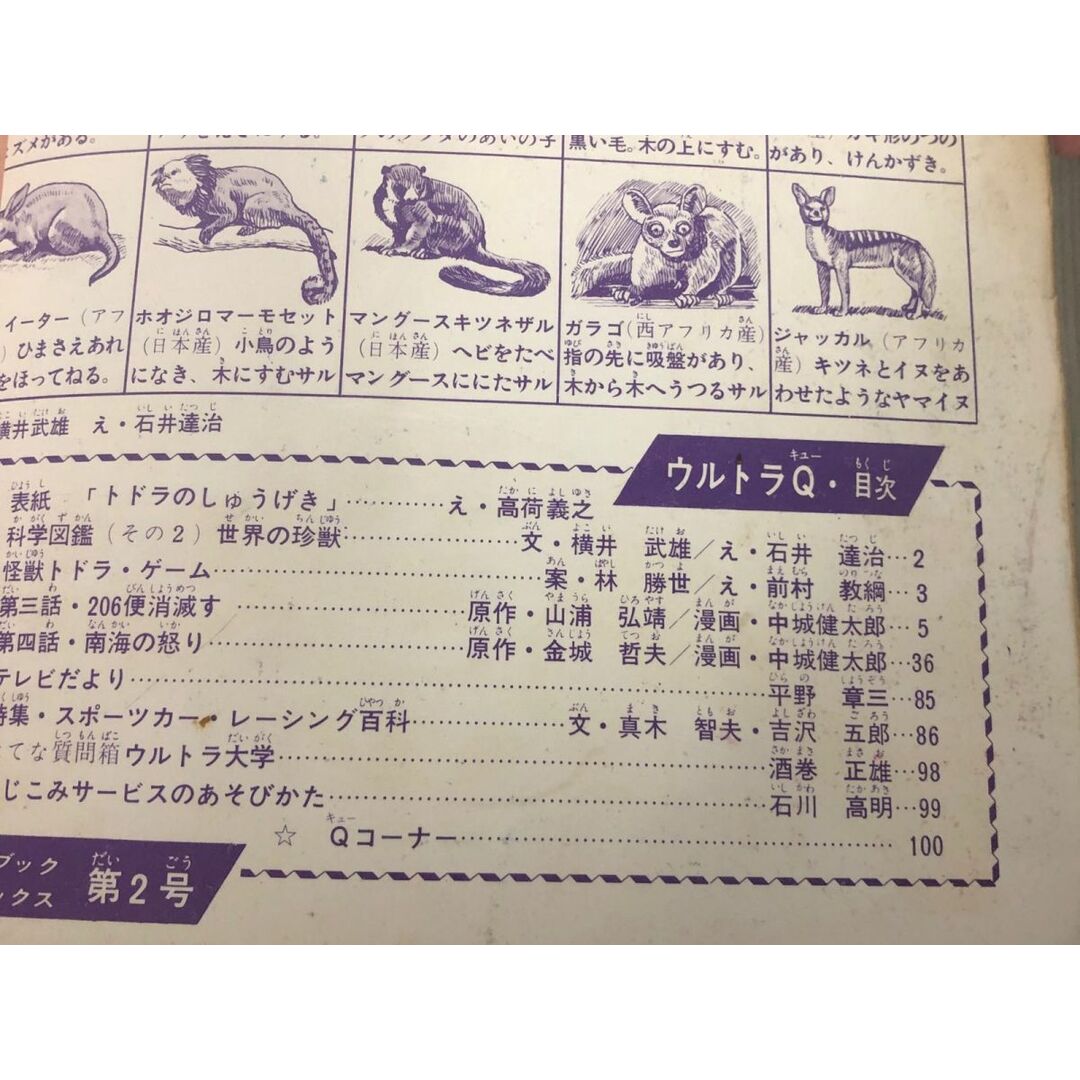 ズメがある。
のあいの子
黒い毛。木の上にすむ。
があり、けんかずき。
イーター(アフ
ひまさえあれ
をほってねる。
ホオジロマーモセット
(日本産) 小鳥のよう
になき、木にすむサル
マングースキツネザル
(日本産) ヘビをたべ
マングースににたサル
ガラゴ(西アフリカ産)
指の先に吸盤があり、
木から木へうつるサル
ジャッカル(アフリカ
産) キツネとイヌをあ
わせたようなヤマイヌ
横井武雄 え・石井達治
ウルトラQ・目次
表紙 「トドラのしゅうげき」……え・高荷義之
科学図鑑(その2) 世界の珍獣……文・横井 武雄/え・石井 達治…2
怪獣トドラ・ゲーム……案・林 勝世/え・前村 教綱…3
第三話・206便消滅す 原作・山浦 弘靖/漫画・中城健太郎…5
第四話・南海の怒り……原作・金城 哲夫/漫画・中城健太郎…36
テレビだより……平野 章三…85
特集・スポーツカー・レーシング百科……文・真木 智夫・吉沢 五郎…86
てな質問箱ウルトラ大学……酒巻 正雄…98
じこみサービスのあそびかた……石川 高明…99
☆ Qコーナー……100
ブック
ックス 第2号